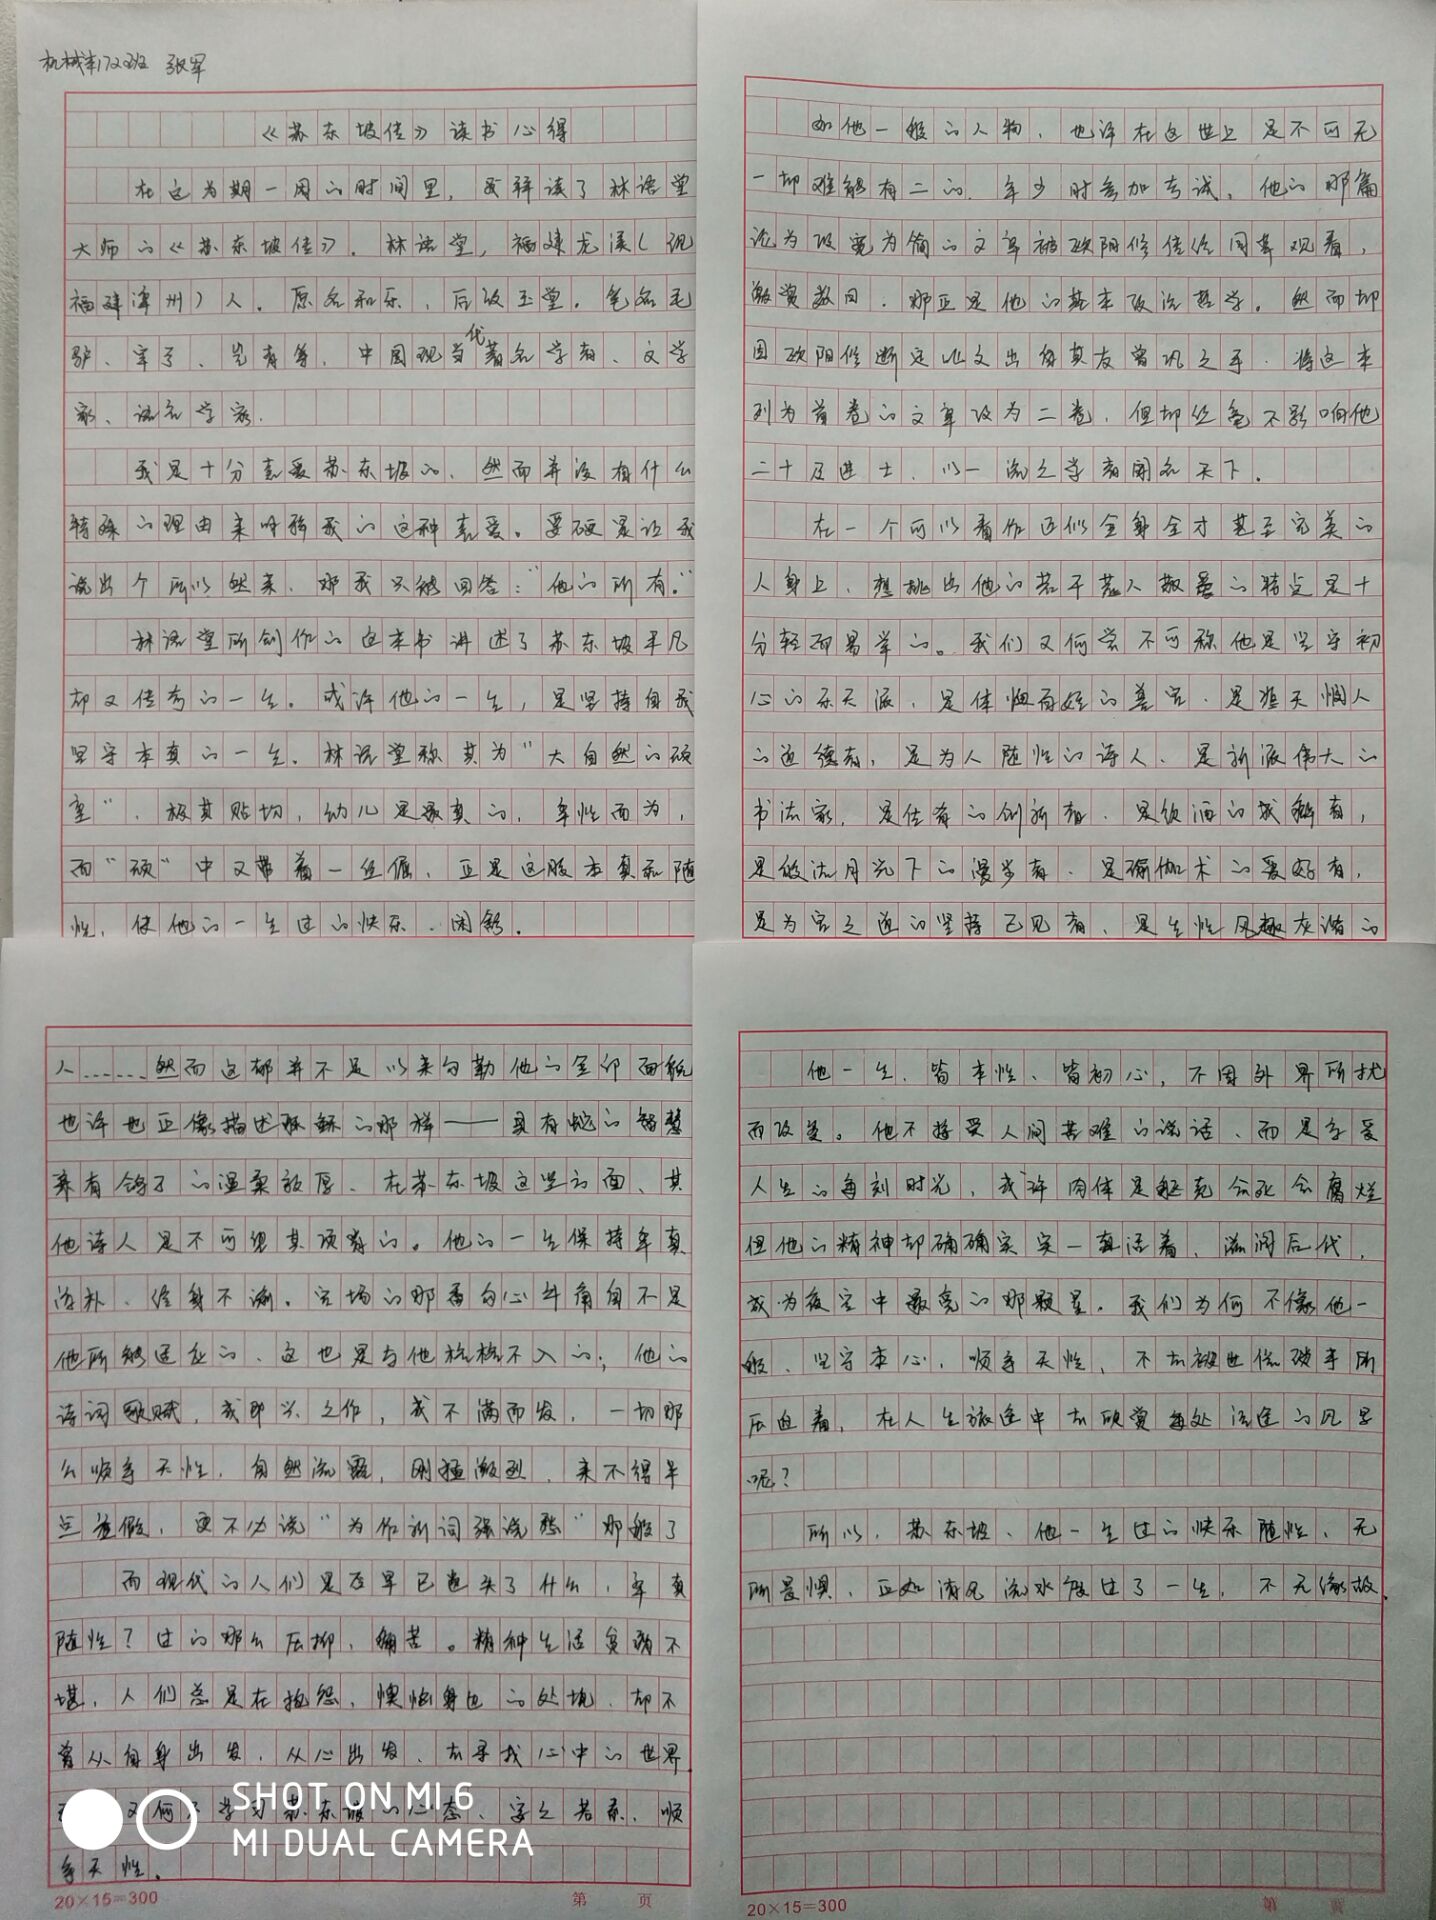 机械本1722班 张军
《苏东坡传》读书心得
在这为期一周的时间里，我拜读了林语堂
大师的《苏东坡传》。林语堂，福建龙溪（现
福建漳州）人。原名和乐，后改玉堂。笔名毛
驴、宰予、岂青等，中国现当代著名学者、文学
家、语言学家.
我是十分喜爱苏东坡的、然而并没有什么
特殊的理由来诠释我的这种喜爱。要硬是让我
说出个所以然来，那我只能回答："他的所有。"
林语堂所创作的这本书讲述了苏东坡平凡
却又传奇的一生。或许他的一生，是坚持自我
坚守本真的一生。林语堂称其为"大自然的顽
童"，极其贴切，幼儿是最真的，率性而为，
而"顽"中又带着一丝倔，正是这股本真和随
性，使他的一生过的快乐、闲舒.
如他一般的人物，也许在这世上是不可无
一却难能有二的.年少时参加考试，他的那篇
论为政宽为简的文章被欧阳修传给同辈观看，
激赏数日，那正是他的基本政治哲学。然而却
因欧阳修断定此文出自其友曾巩之手，将这本
列为首卷的文章改为二卷，但却丝毫不影响他
二十及进士，以一流之学者闻名天下.
在一个可以看作近似全身全才甚至完美的
人身上，想挑出他的若干惹人敬爱的特点是十
分轻而易举的。我们又何尝不可称他是坚守初
心的乐天派，是体恤百姓的善官、是悲天悯人
的道德者，是为人随性的诗人、是新派伟大的
书法家，是佳肴的创新者、是饮酒的成瘾者，
是般沽月光下的漫步者、是瑜伽术的爱好者，
是为官之道的坚持己见者、是生性风趣灰谐的
人……然而这都并不足以来勾勒他的全部面貌
也许也正像描述酥稣的那样——具有蛇的智慧
兼有鸽子的温柔敦厚、在苏东坡这些方面、其
他诗人是不可望其项背的。他的一生保持率真
淳朴、终身不渝。官场的那番勾心斗角自不是
他所能适应的、这也是与他格格不入的；他的
诗词歌赋，或即兴之作，或不满而发，一切那
么顺乎天性，自然流露，刚猛激烈、来不得半
点虚假，更不必说"为作新词强说愁"那般了
而现代的人们是否早已遗失了什么，率真
随性？过的那么压抑、痛苦。精神生活贫瘠不
堪，人们总是在抱怨，懊恼身边的处境，却不
曾从自身出发，从心出发、去寻找心中的世界.
又何不学习苏东坡的心态、安之若素，顺
乎天性。
他一生、皆本性、皆初心，不因外界所扰
而改变。他不接受人间苦难的说话、而是享受
人生的每刻时光，或许肉体是躯壳会死会腐烂
但他的精神却确确实实一直活着、滋润后代，
成为夜空中最亮的那颗星。我们为何不像他一
般、坚守本心，顺乎天性，不去被世俗琐事所
压迫着，在人生旅途中去欣赏每处沿途的风景
呢？
所以，苏东坡、他一生过的快乐随性、无
所畏惧、正如清风流水般过了一生，不无缘故.
20×15=300
第 页
20×15=300
第 页
SHOT ON MI 6
MI DUAL CAMERA